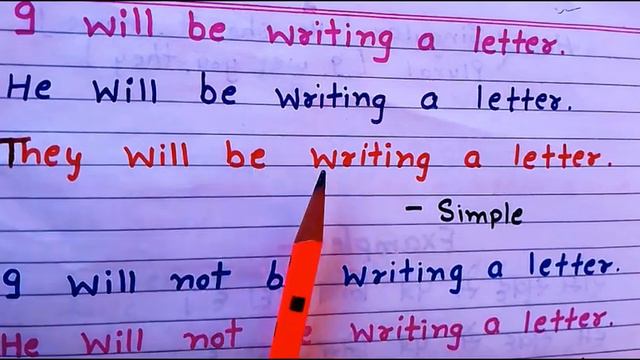 I will be writing a letter.
He will be writing a letter.
They will be writing a letter.
- Simple
I will not b writing a letter.
He will not e writing a letter.